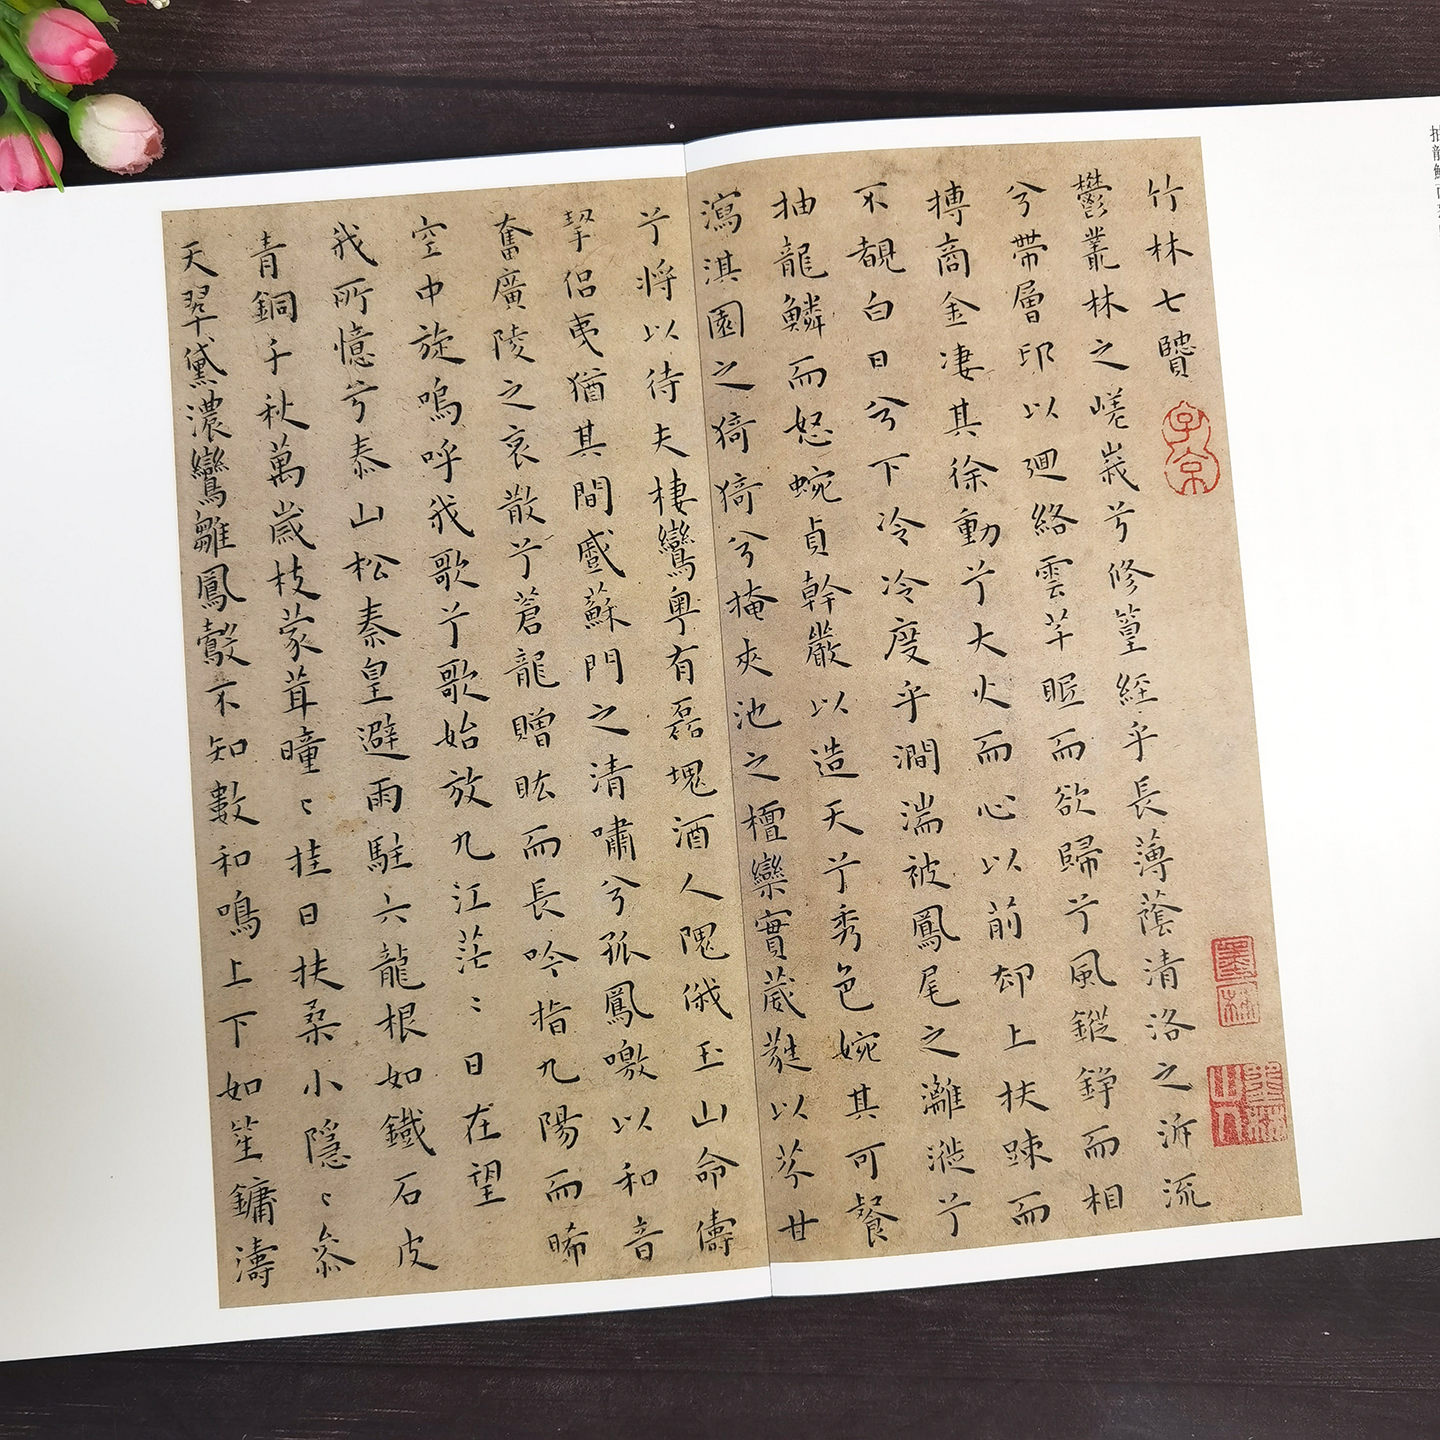 竹林七贒
鬱叢林之嵯峩兮修篁經乎長薄蔭清洛之泝流
兮帶層邙以迴絡雲芊眠而欲歸兮風鏦錚而相
摶商金凄其徐動兮大火而心以前却上扶踈而
不覩白日兮下冷冷度乎澗湍被鳳尾之灕漇兮
抽龍鱗而怒蜿貞幹嚴以造天兮秀色婉其可餐
瀉淇園之猗猗兮掩夾池之檀欒實葳蕤以芬甘
兮将以待夫棲鸞粤有磊塊酒人隗俄玉山命儔
挈侣夷猶其間慼蘇門之清嘯兮孤鳳噭以和音
奮廣陵之哀散兮蒼龍贈眩而長吟指九陽而晞
空中旋嗚呼我歌兮歌始放九江茫〻日在望
我所憶兮泰山松秦皇避雨駐六龍根如鐵石皮
青銅千秋萬歲枝蒙茸曈〻挂日扶桑小隱〻叅
天翠黛濃鸞雛鳳鷇不知數和鳴上下如笙鏞濤
子京
墨林
墨林山人